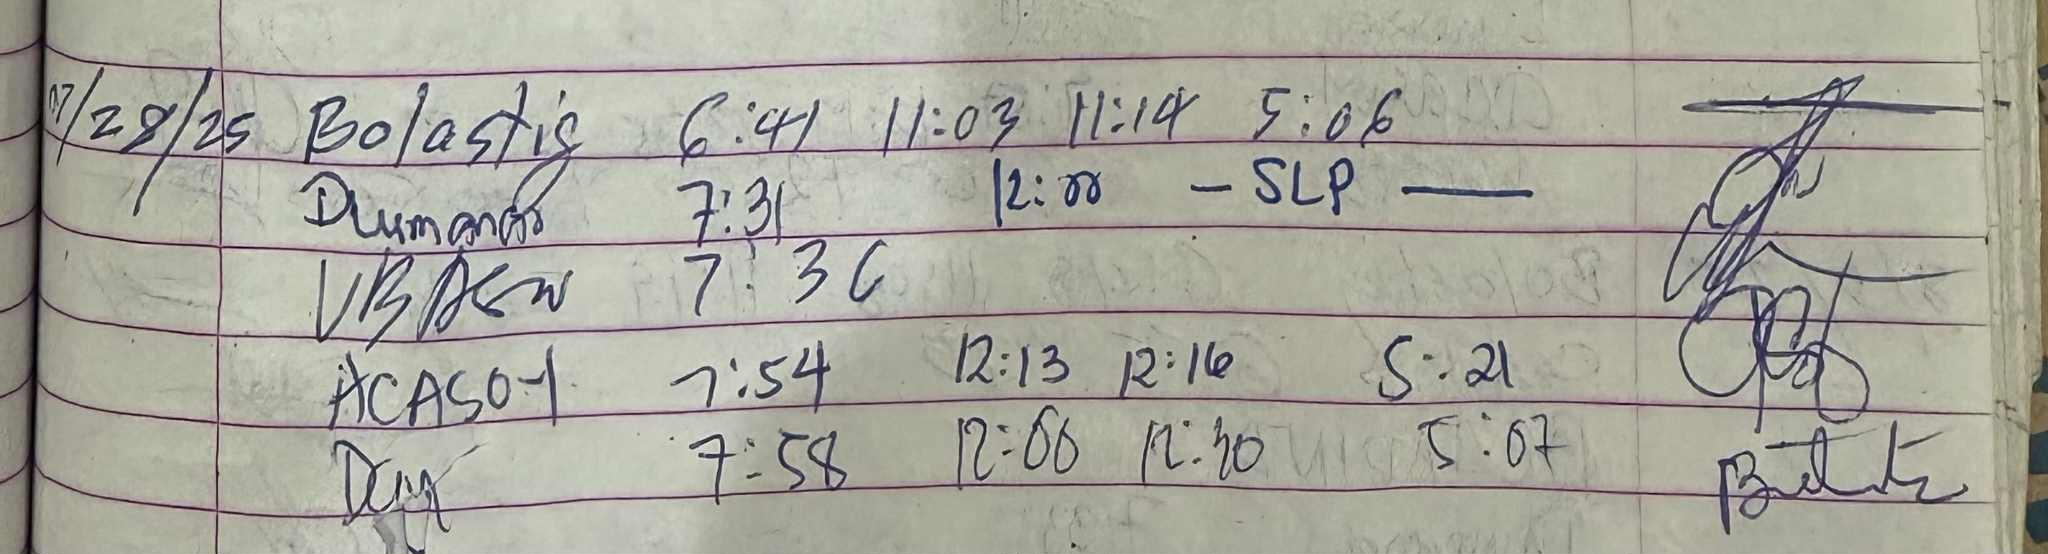 07/28/25 Bolastig 6:41 11:03 11:14 5:06
Dumanon 7:31 12:00 - SLP —
7:36
ACASO-1 7:54 12:13 12:16 5:21
7:58 12:00 12:30 5:07